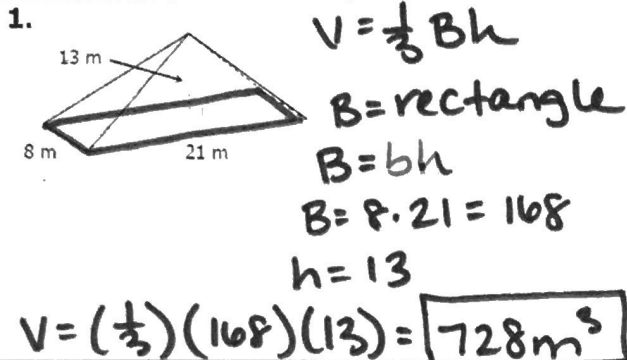 1.
13 m
8 m
21 m
V = 1/3 Bh
B = rectangle
B = bh
B = 8 · 21 = 168
h = 13
V = (1/3)(168)(13) = 728m³